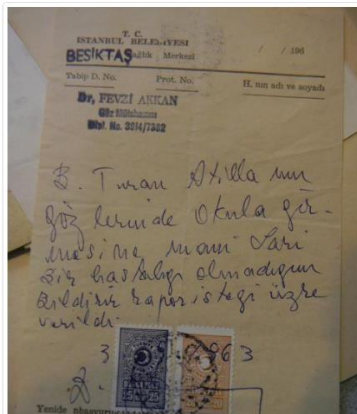 T. C.
ISTANBUL BELEDİYESİ
BEŞİKTAŞ Sağlık Merkezi
/ / 196
Tabip D. No. Prot. No. H. nın adı ve soyadı
Dr. FEVZİ AKKAN
Göz Mütehassısı
Dipl. No. 3814/7382
B. Turan Atilla nın
göz lerinde Okula gir-
mesine mani Sari
bir hastalığı olmadığın
bildirir rapor isteği üzre
verildi
3 963
Yeniden